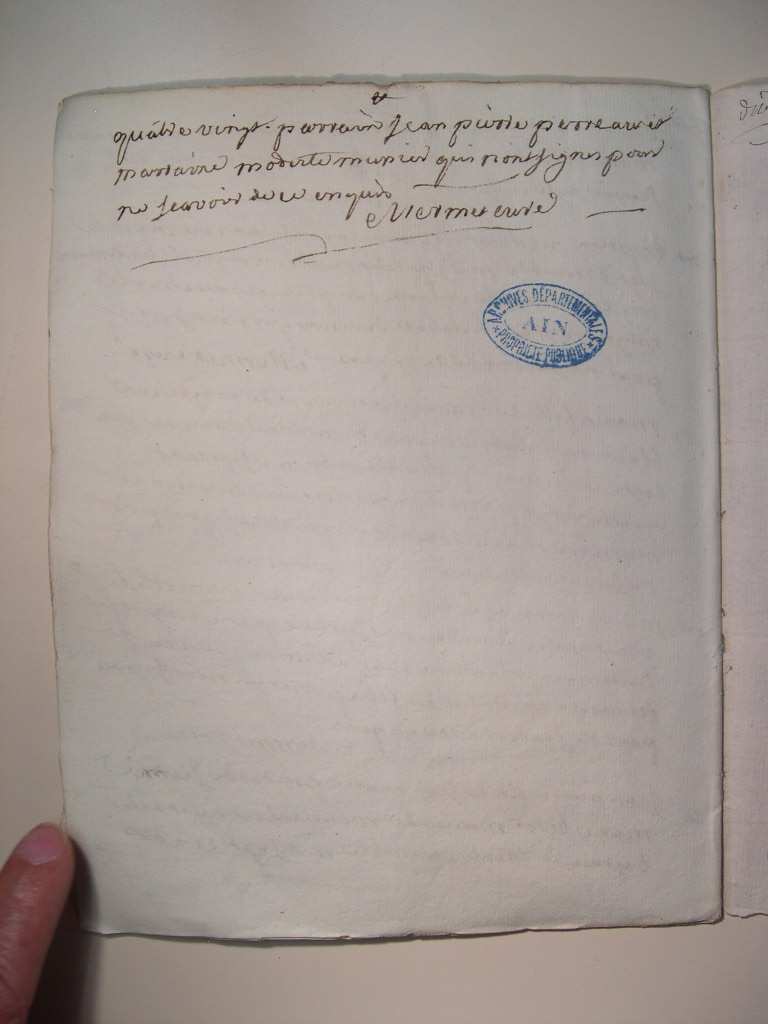 &
quatre vingt. parrain Jean pierre perreau et
marraine modeste munier qui n'ont signes pour
ne scavoir de ce enquis
Mermet curé
ARCHIVES DÉPARTEMENTALES
AIN
PROPRIÉTÉ PUBLIQUE